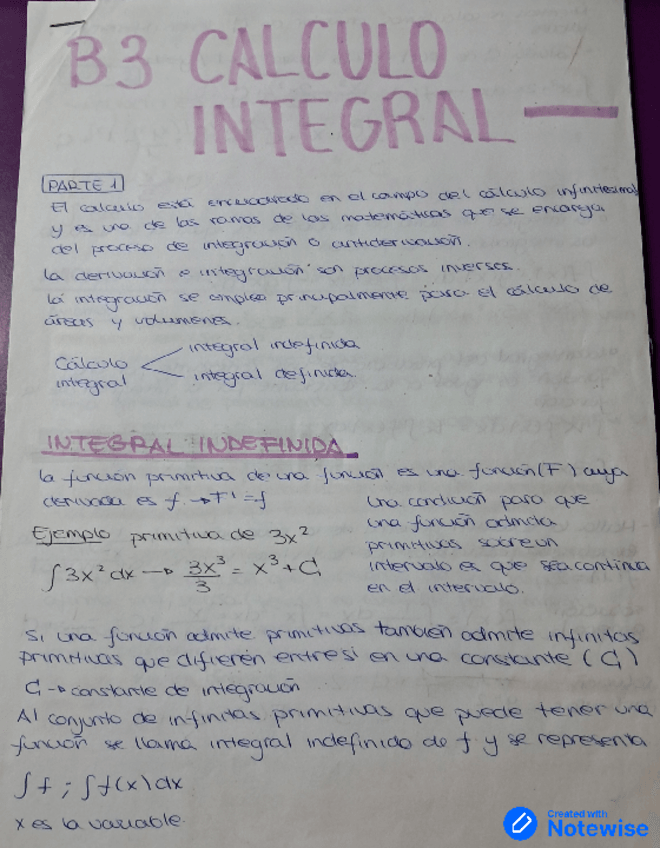 B3 CALCULO
INTEGRAL
PARTE 1
El calculo está encuadrado en el campo del cálculo infinitesimal
y es una de las ramas de las matemáticas que se encarga
del proceso de integración o antiderivación.
La derivación e integración son procesos inversos.
La integración se emplea principalmente para el cálculo de
áreas y volumenes.
Cálculo
integral
integral indefinida
integral definida
INTEGRAL INDEFINIDA
la función primitiva de una función es una función (F) cuya
derivada es f → F' = f
Ejemplo primitiva de 3x²
∫3x² dx → 3x³/3 = x³ + C
Una condición para que
una función admita
primitivas sobre un
intervalo es que sea continua
en el intervalo.
Si una función admite primitivas también admite infinitas
primitivas que difieren entre si en una constante (C)
C → constante de integración
Al conjunto de infinitas primitivas que puede tener una
función se llama integral indefinida de f y se representa
∫f ; ∫f(x)dx
x es la variable.
Created with
Notewise